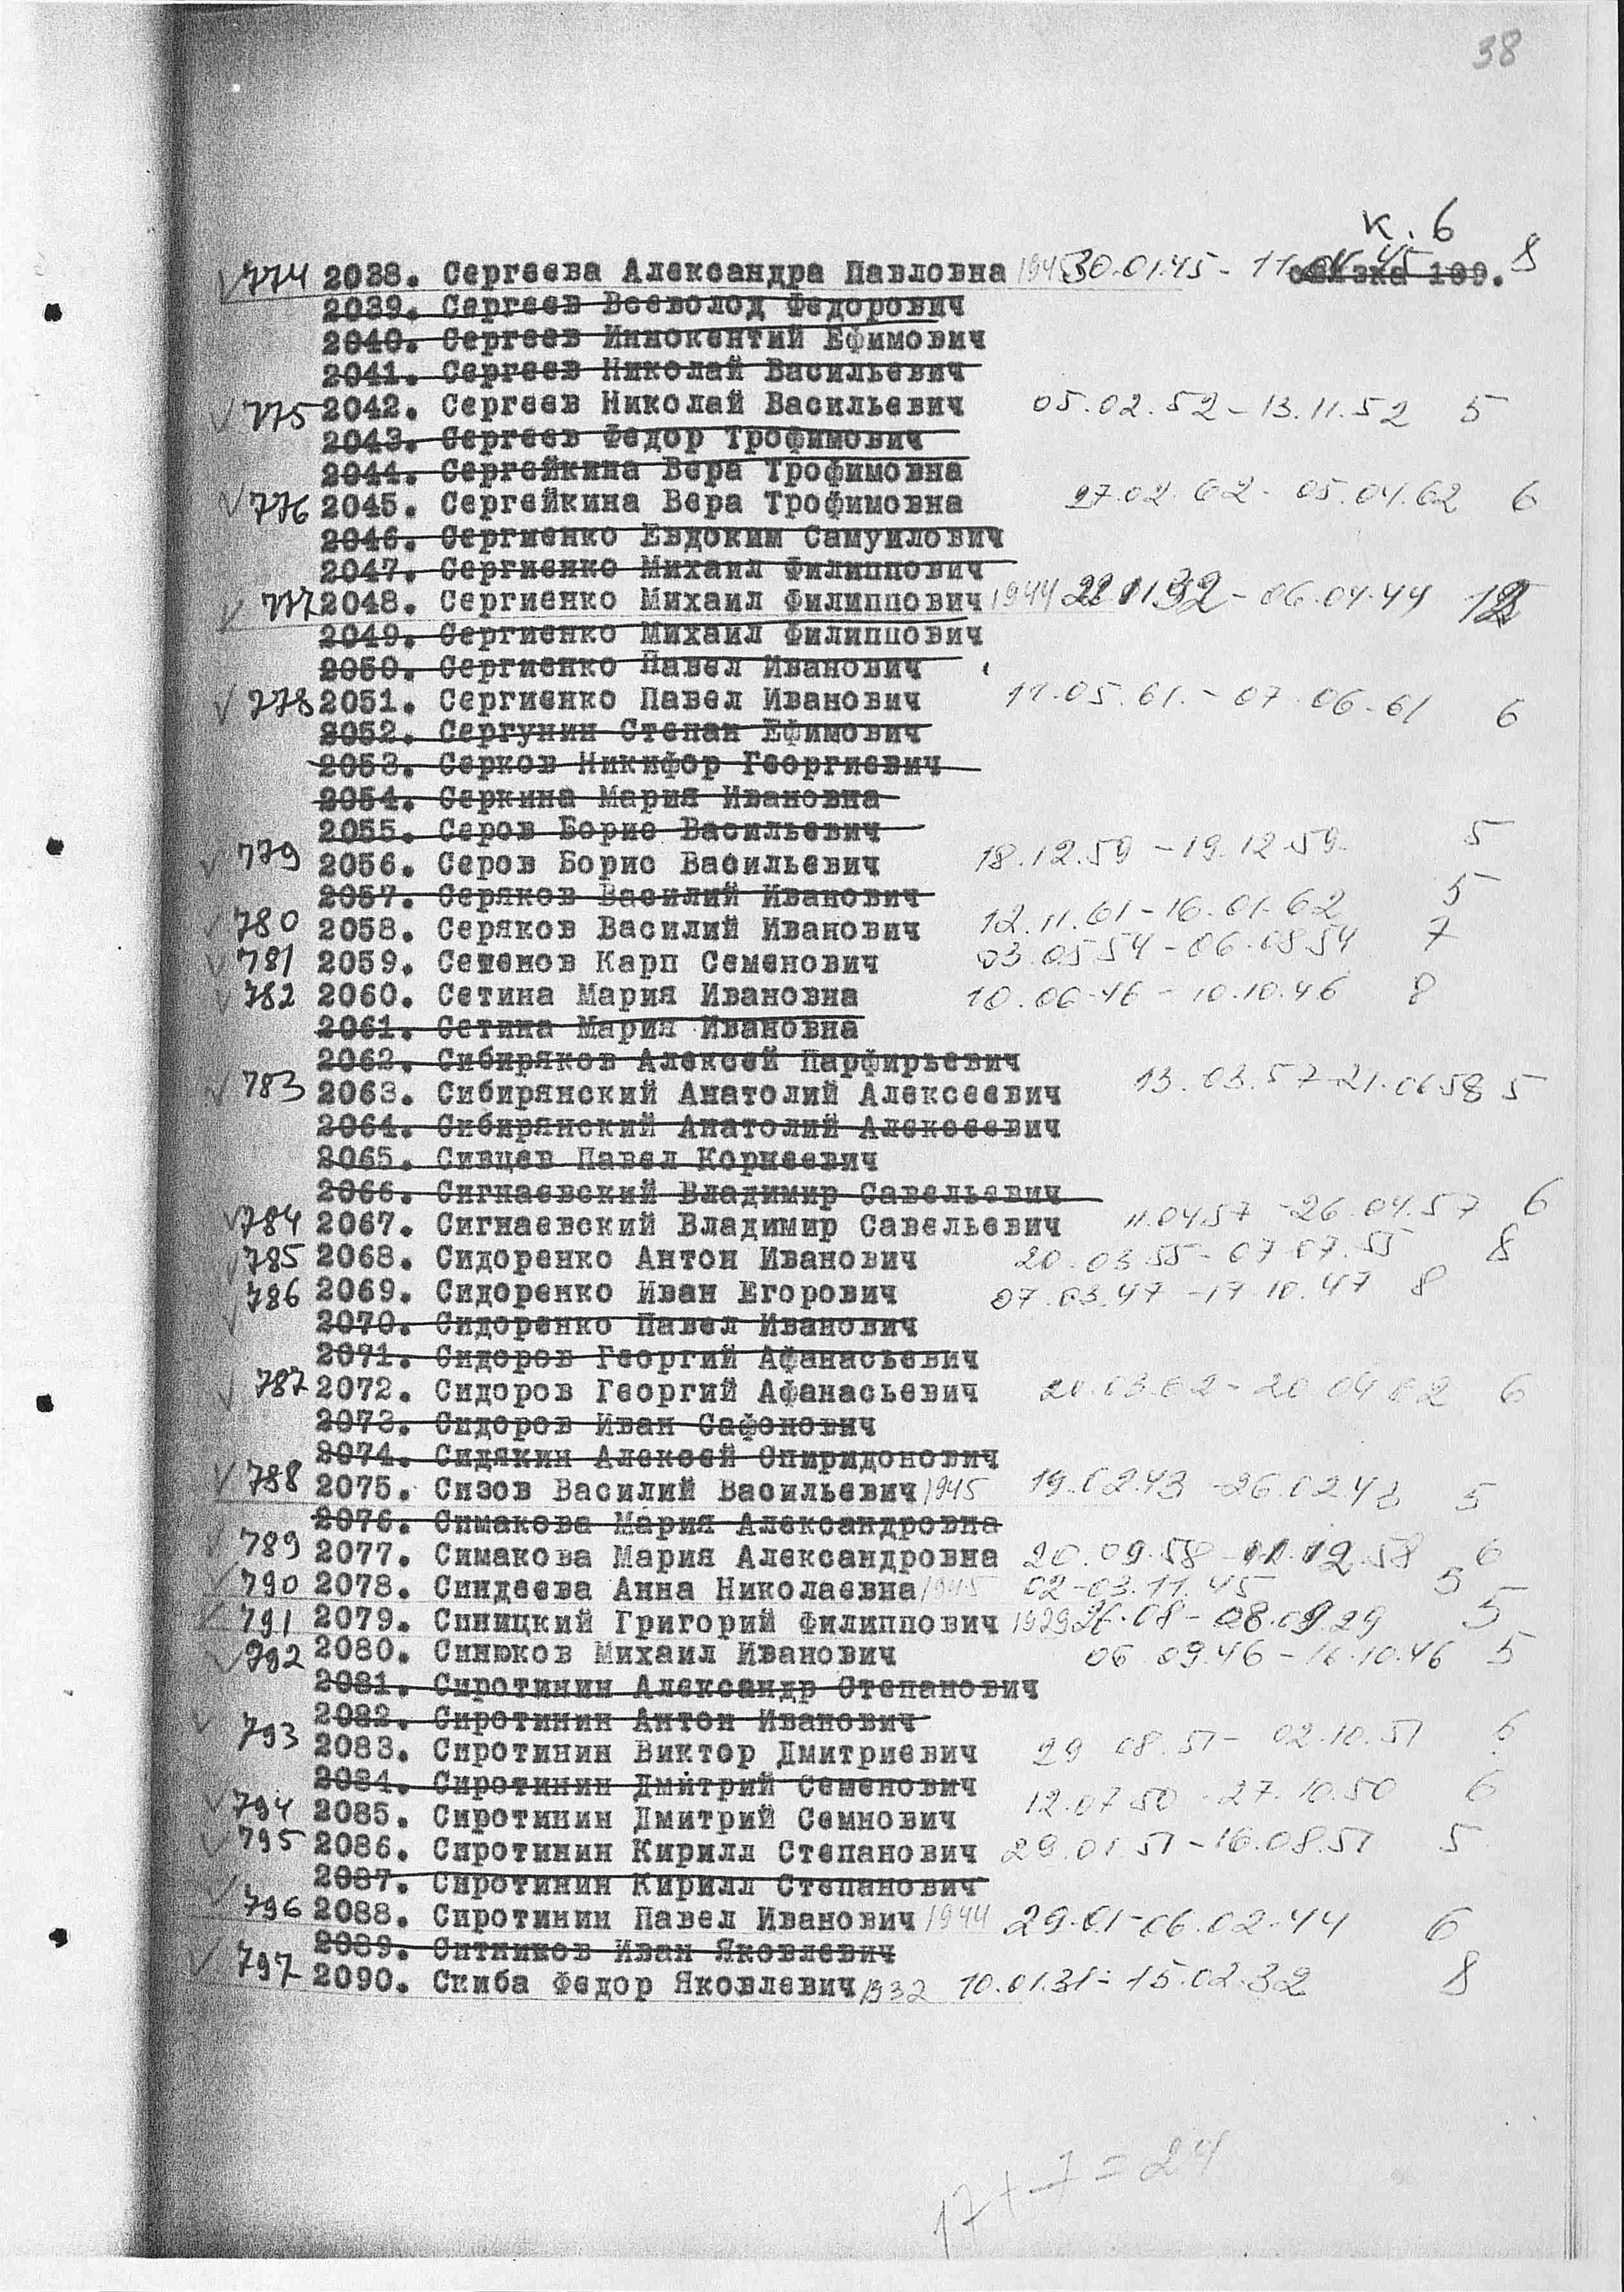 38
к. 6
774 2038. Сергеева Александра Павловна 30.01.45 - 11. 45 связка 109. 8
2039. Сергеев Всеволод Федорович
2040. Сергеев Иннокентий Ефимович
2041. Сергеев Николай Васильевич
775 2042. Сергеев Николай Васильевич 05.02.52 - 13.11.52 5
2043. Сергеев Федор Трофимович
2044. Сергейкина Вера Трофимовна
776 2045. Сергейкина Вера Трофимовна 27.02.62 - 05.04.62 6
2046. Сергиенко Евдоким Самуилович
2047. Сергиенко Михаил Филиппович
777 2048. Сергиенко Михаил Филиппович 1944 - 06.04.44
2049. Сергиенко Михаил Филиппович
2050. Сергиенко Павел Иванович
778 2051. Сергиенко Павел Иванович 11.05.61. - 07.06.61 6
2052. Сергунин Степан Ефимович
2053. Серков Никифор Георгиевич
2054. Серкина Мария Ивановна
2055. Серов Борис Васильевич
779 2056. Серов Борис Васильевич 18.12.59 - 19.12.59. 5
2057. Серяков Василий Иванович
780 2058. Серяков Василий Иванович 12.11.61 - 16.01.62 5
781 2059. Сетенов Карп Семенович 03.05.54 - 06.08.54 7
782 2060. Сетина Мария Ивановна 10.06.46 - 10.10.46 8
2061. Сетина Мария Ивановна
2062. Сибиряков Алексей Парфирьевич
783 2063. Сибирянский Анатолий Алексеевич 13.03.57 - 21.06.58 5
2064. Сибирянский Анатолий Алексеевич
2065. Сивцев Павел Корнеевич
2066. Сигнаевский Владимир Савельевич
784 2067. Сигнаевский Владимир Савельевич 11.04.57 - 26.04.57 6
785 2068. Сидоренко Антон Иванович 20.03.55 - 07.07.55 8
786 2069. Сидоренко Иван Егорович 07.03.47 - 17.10.47 8
2070. Сидоренко Павел Иванович
2071. Сидоров Георгий Афанасьевич
787 2072. Сидоров Георгий Афанасьевич 20.03.62 - 20.04.62 6
2073. Сидоров Иван Сафонович
2074. Сидякин Алексей Спиридонович
788 2075. Сизов Василий Васильевич 1945 19.02.43 - 26.02.43 5
2076. Симакова Мария Александровна
789 2077. Симакова Мария Александровна 20.09.58 - 11.12.58 6
790 2078. Синдеева Анна Николаевна 1945 02-03.11.45 5
791 2079. Синицкий Григорий Филиппович 1929 26.08 - 08.09.29 5
792 2080. Синюков Михаил Иванович 06.09.46 - 16.10.46 5
2081. Сиротинин Александр Степанович
2082. Сиротинин Антон Иванович
793 2083. Сиротинин Виктор Дмитриевич 29.08.51 - 02.10.51 6
2084. Сиротинин Дмитрий Семенович
794 2085. Сиротинин Дмитрий Семнович 12.07.50 - 27.10.50 6
795 2086. Сиротинин Кирилл Степанович 29.01.51 - 16.08.51 5
2087. Сиротинин Кирилл Степанович
796 2088. Сиротинин Павел Иванович 1944 29.01 - 06.02.44 6
2089. Ситников Иван Яковлевич
797 2090. Скиба Федор Яковлевич 1932 10.01.31 - 15.02.32 8
17 + 7 = 24